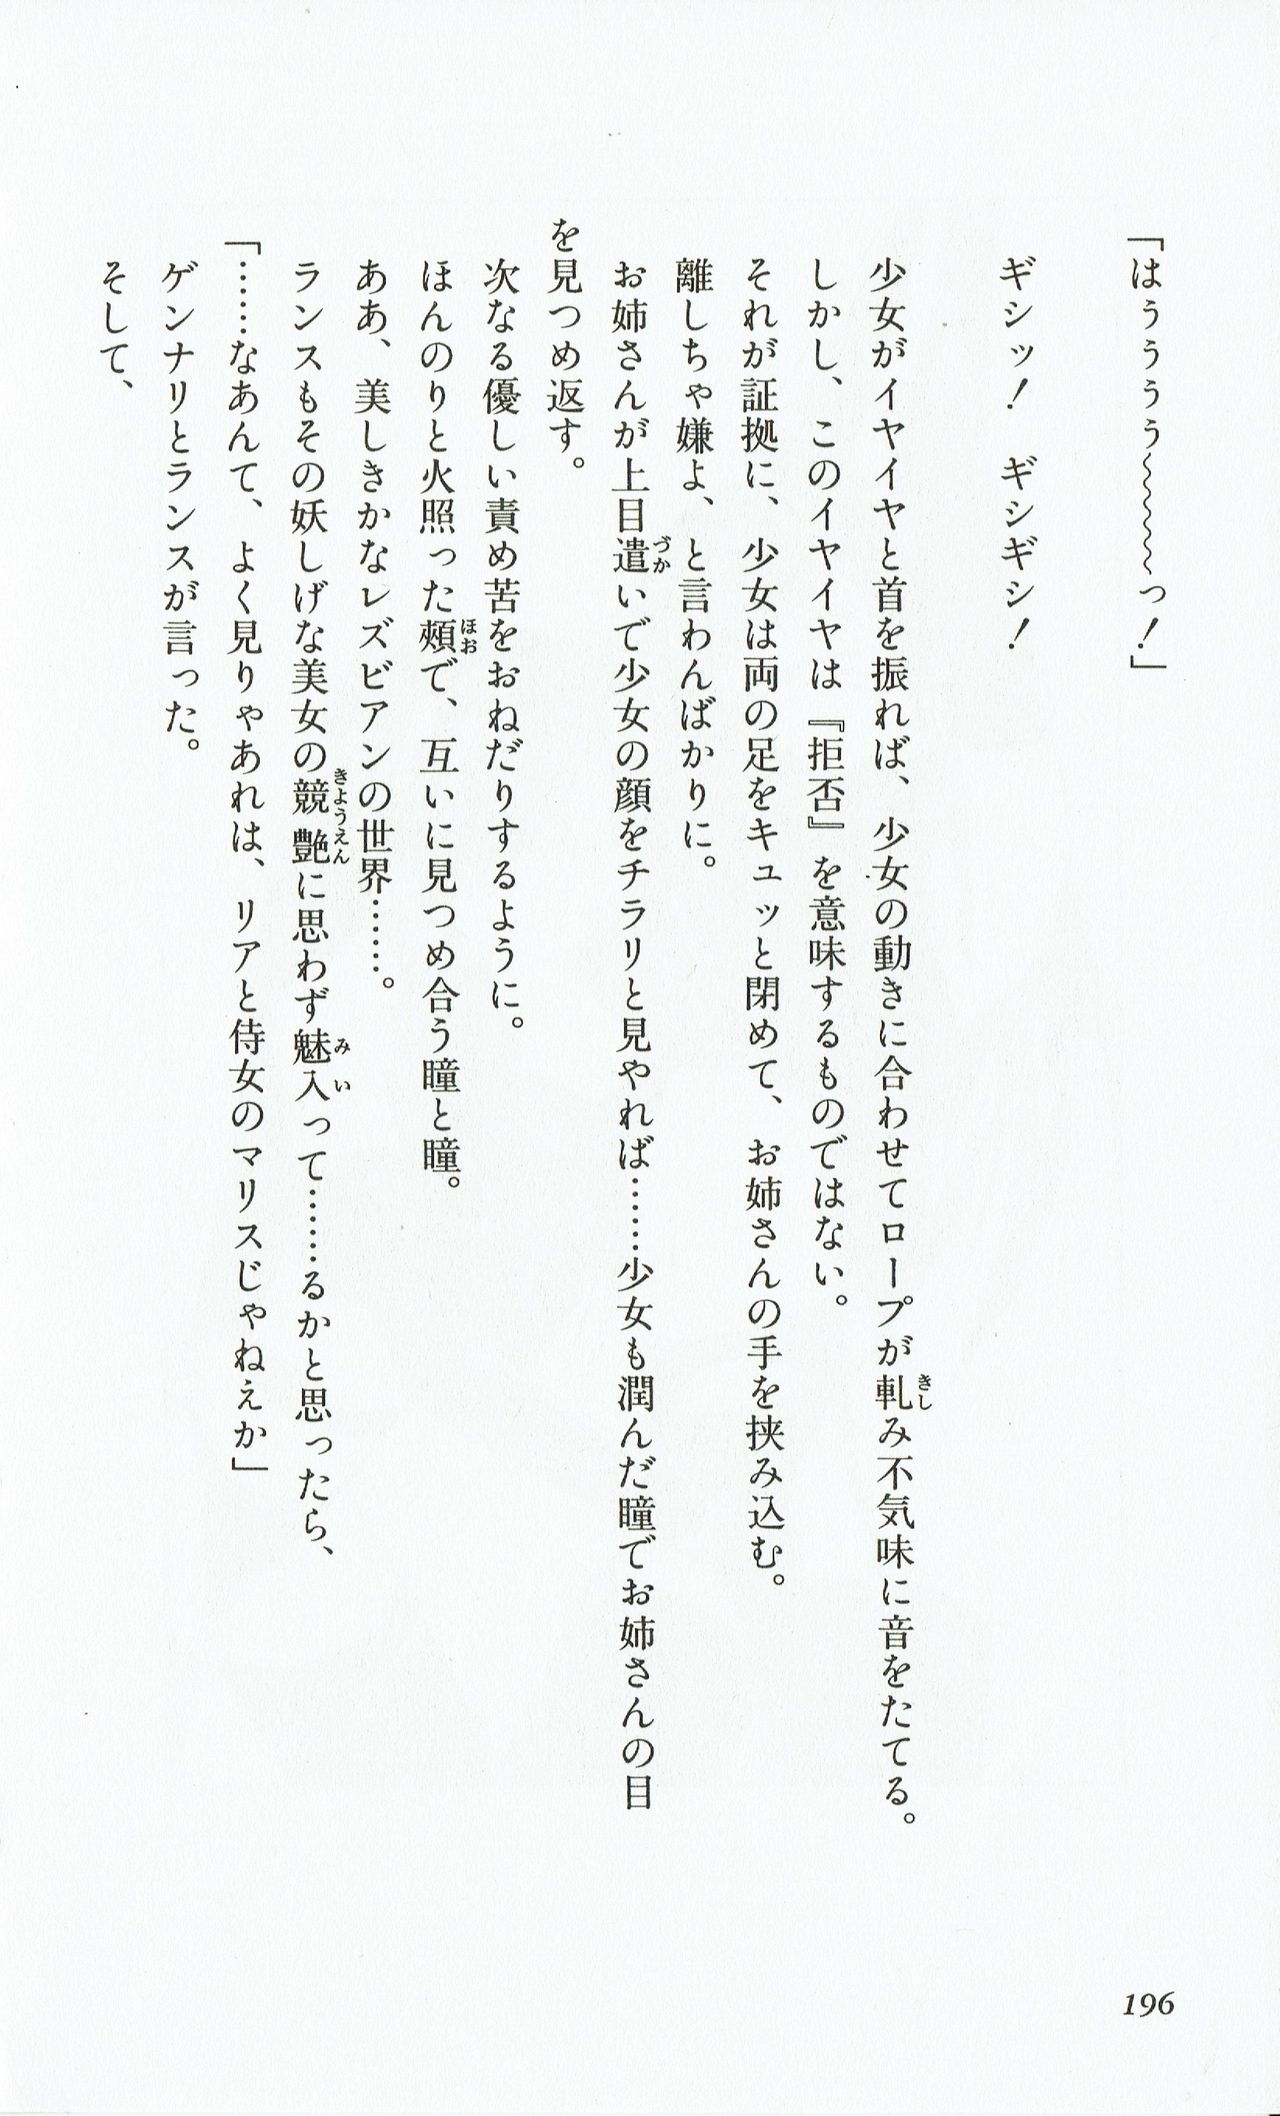 「はぅぅぅぅ〜〜〜〜っ！」
ギシッ！　ギシギシ！
少女がイヤイヤと首を振れば、少女の動きに合わせてロープが軋み不気味に音をたてる。
しかし、このイヤイヤは『拒否』を意味するものではない。
それが証拠に、少女は両の足をキュッと閉めて、お姉さんの手を挟み込む。
離しちゃ嫌よ、と言わんばかりに。
お姉さんが上目遣いで少女の顔をチラリと見やれば……少女も潤んだ瞳でお姉さんの目
を見つめ返す。
次なる優しい責め苦をおねだりするように。
ほんのりと火照った頬で、互いに見つめ合う瞳と瞳。
ああ、美しきかなレズビアンの世界……。
ランスもその妖しげな美女の競艶に思わず魅入って……るかと思ったら、
「……なあんて、よく見りゃあれは、リアと侍女のマリスじゃねぇか」
ゲンナリとランスが言った。
そして、
196